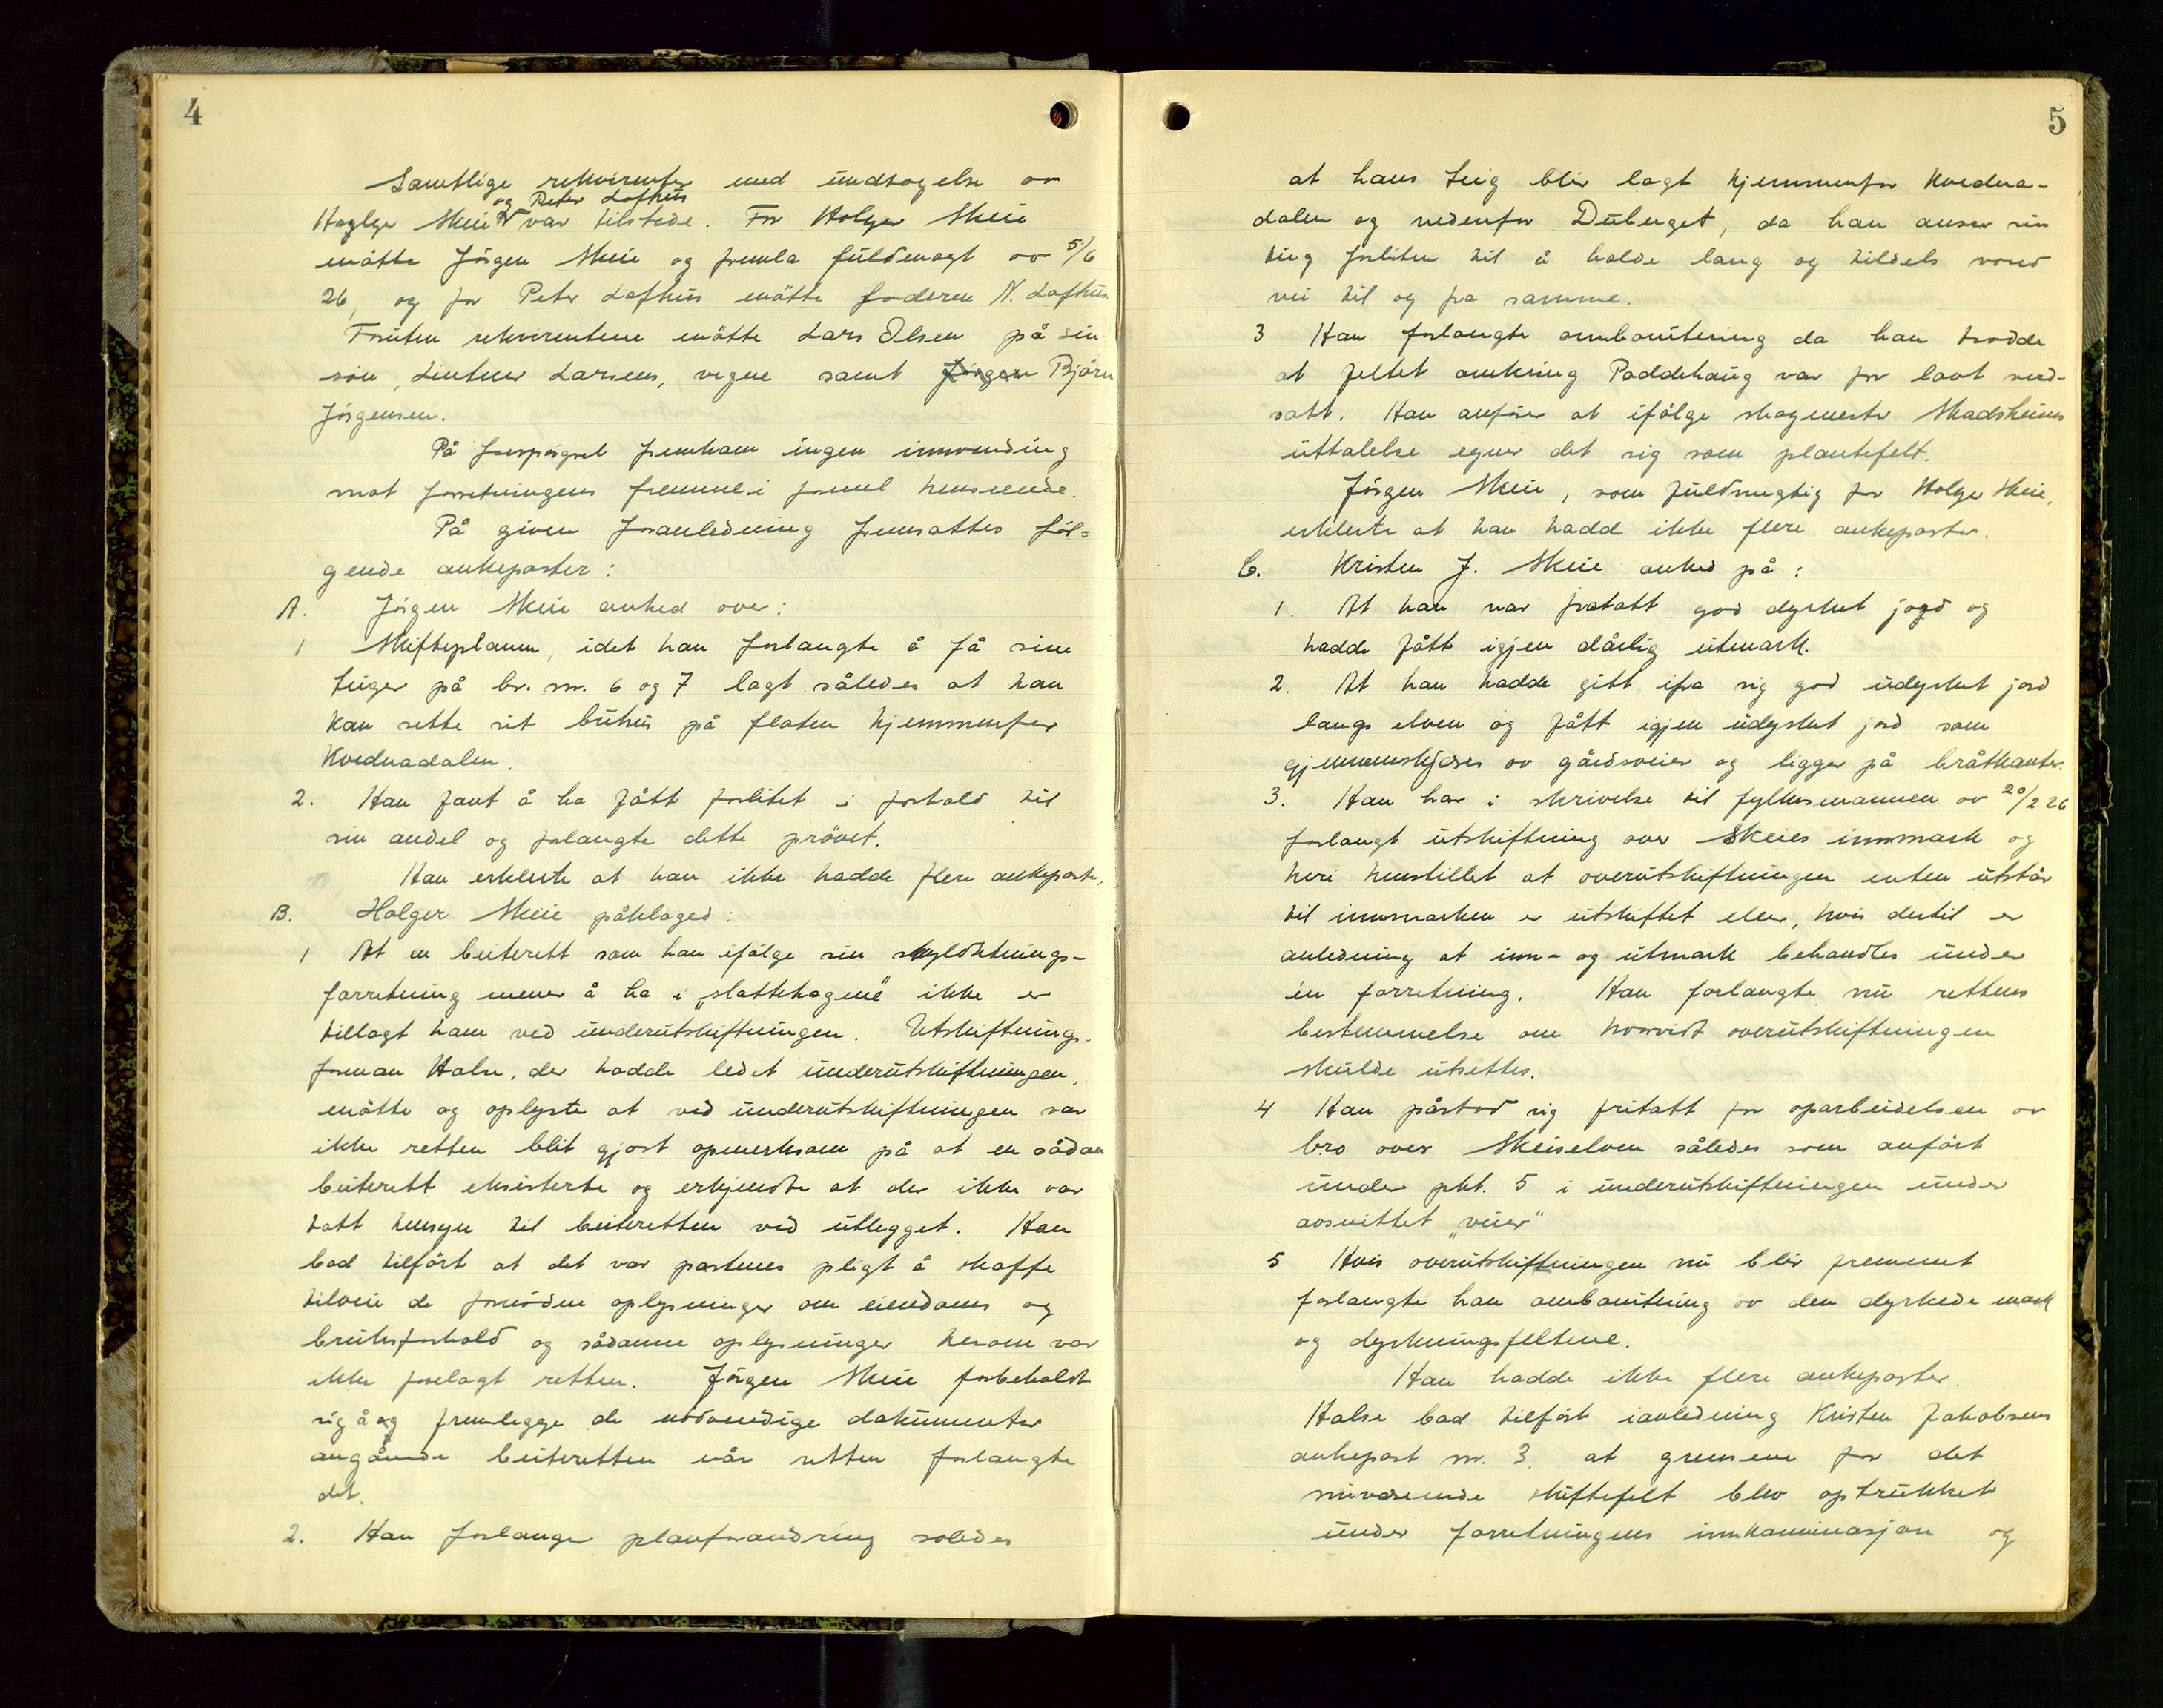 4
Samtlige rekvirenter med undtagelse av
og Peter Lofthus
Hoglger Skeie var tilstede. For Holger Skeie
møtte Jörgen Skeie og fremla fuldmagt av 5/6
26, og for Peter Lofthus møtte faderen N. Lofthus.
Foruten rekvirentene møtte Lars Olsen på sin
søn, Lintner Larsens, vegne samt Jörgen Björn
Jörgensen.
På forespörgsel fremkom ingen innvending
mot forretningens fremme i formel henseende.
På given foranledning fremsattes föl=
gende ankeposter:
A. Jörgen Skeie anked over:
1 Skifteplanen, idet han forlangte å få sine
teiger på br. nr. 6 og 7 lagt således at han
kan sette sit buhus på flaten hjemmenfor
Kvednadalen.
2. Han fant å ha fått forlitet i forhold til
sin andel og forlangte dette prövet.
Han erklerte at han ikke hadde flere ankeposter,
B. Holger Skeie påklaged:
1 At en beiterett som han ifölge sin skyldsetnings-
forretning mener å ha i „slattehagene" ikke er
tillagt ham ved underutskiftningen. Utskiftnings-
forman Halse, der hadde ledet underutskiftningen,
møtte og oplyste at ved underutskiftningen var
ikke retten blit gjort opmerksom på at en sådan
beiterett eksisterte og erkjendte at der ikke var
tatt hensyn til beiteretten ved utlegget. Han
bad tilfört at det var partenes pligt å skaffe
tilveie de fornödne oplysninger om eiendoms og
bruksforhold og sådanne oplysninger herom var
ikke forelagt retten. Jörgen Skeie forbeholdt
sig å og fremlegge de nödvendige dokumenter
angående beiteretten når retten forlangte
det.
2. Han forlanger planforandring soledes
5
at hans teig blir lagt hjemmenfor Kvedna-
dalen og nedenfor Duberget, da han anser sin
teig forliten til å holde lang og tildels vond
vei til og fra samme.
3 Han forlangte ombonitering da han trodde
at feltet omkring Paddehaug var for lavt verd-
satt. Han anförer at ifölge skogmester Skadsheims
uttalelse egner det sig som plantefelt.
Jörgen Skeie, som fuldmegtig for Holger Skeie,
erklerte at han hadd ikke flere ankeposter.
C. Kristen J. Skeie anked på:
1. At han var fratatt god dyrket jord og
hadde fått igjen dårlig utmark.
2. At han hadde gitt ifra sig god udyrket jord
langs elven og fått igjen udyrket jord som
gjennemskjæres av gårdsveier og ligger på bråtkanter.
3. Han har i skrivelse til fylkesmannen av 20/2 26
forlangt utskiftning over Skeies innmark og
heri henstillet at overutskiftningen enten utstår
til innmarken er utskiftet eller, hvis dertil er
anledning at inn- og utmark behandles under
én forretning. Han forlangte nu rettens
bestemmelse om hvorvidt overutskiftningen
skulde utsettes.
4 Han påstod sig fritatt for oparbeidelsen av
bro over Skeiselven således som anfört
under pkt. 5 i underutskiftningen under
avsnittet „veier"
5 Hvis overutskiftningen nu blir fremmet
forlangte han ombonitering av den dyrkede mark
og dyrkningsfeltene.
Han hadde ikke flere ankeposter.
Halse bad tilfört i anledning Kristen Jakobsens
ankepost nr. 3. at grensene for det
nuværende skiftefelt blev optrukket
under forretningens innkaminasjon og